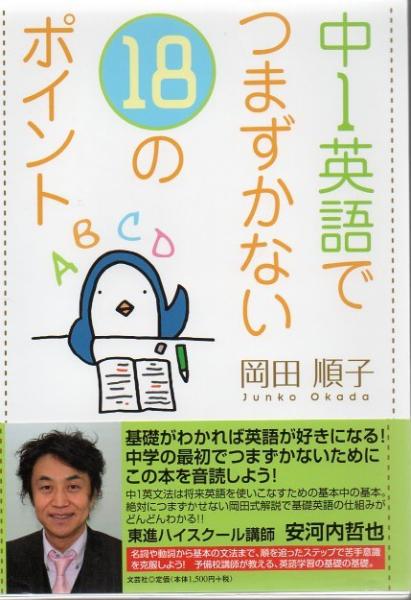 中1英語で
つまずかない
18の
ポイント
ABCD
岡田 順子
Junko Okada
基礎がわかれば英語が好きになる!
中学の最初でつまずかないために
この本を音読しよう!
中1英文法は将来英語を使いこなすための基本中の基本。
絶対につまずかせない岡田式解説で基礎英語の仕組みが
どんどんわかる!!
東進ハイスクール講師 安河内哲也
名詞や動詞から基本の文法まで、順を追ったステップで苦手意識
を克服しよう! 予備校講師が教える、英語学習の基礎の基礎。
文芸社◎定価(本体1,500円+税)